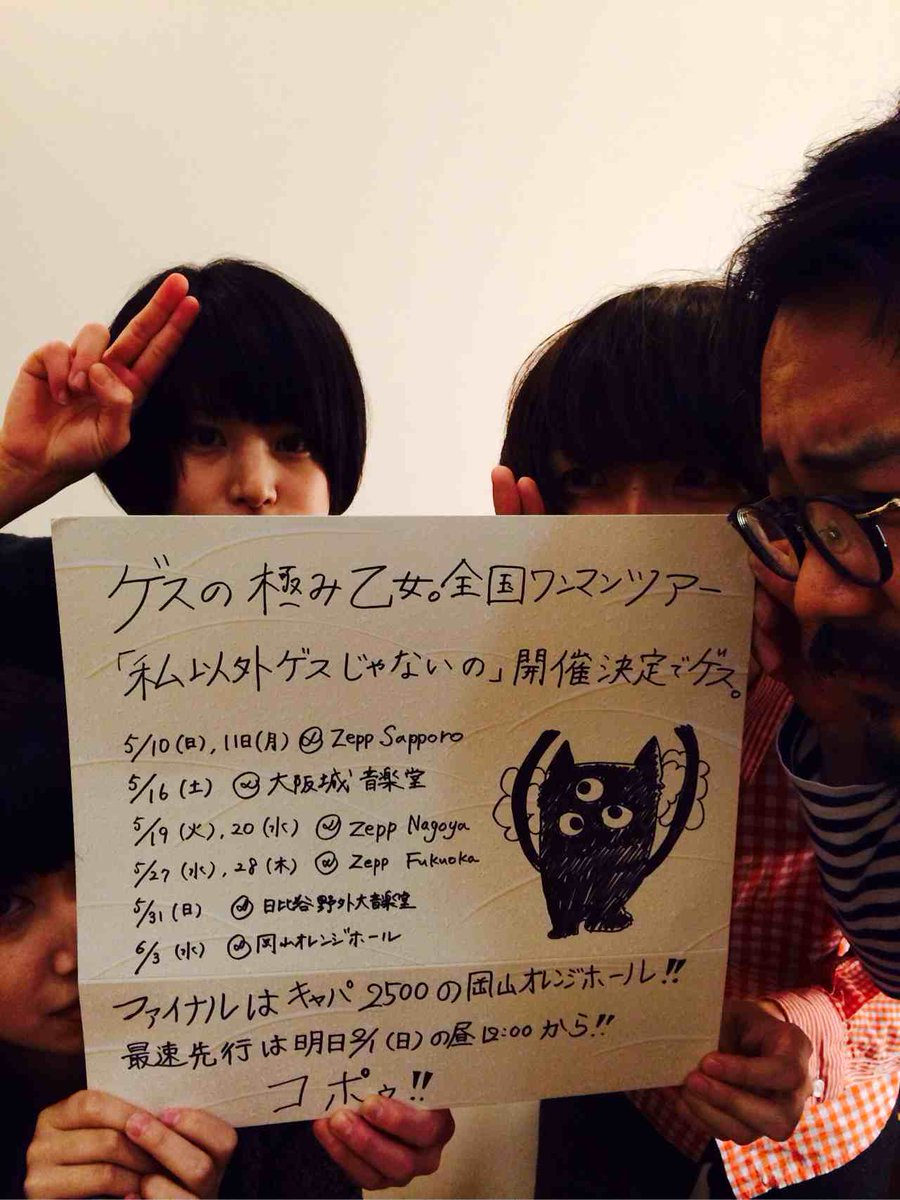 ゲスの極み乙女。全国ワンマンツアー
「私以外ゲスじゃないの」開催決定でゲス。
5/10(日),11日(月) @ Zepp Sapporo
5/16(土) @ 大阪城音楽堂
5/19(火),20(水) @ Zepp Nagoya
5/27(水),28(木) @ Zepp Fukuoka
5/31(日) @ 日比谷野外大音楽堂
6/3(水) @ 岡山オレンジホール
ファイナルはキャパ2500の岡山オレンジホール!!
最速先行は明日2/1(日)の昼12:00から!!
コポゥ!!